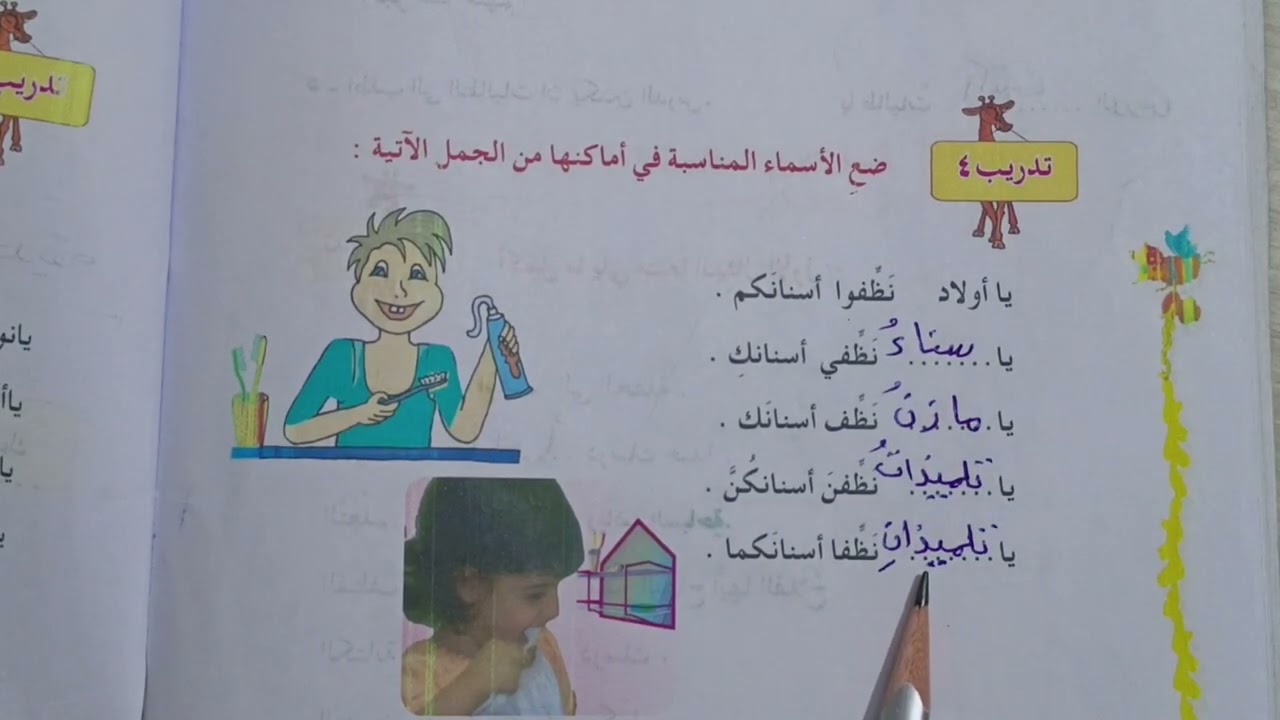 تدريب ٤
ضعِ الأسماء المناسبة في أماكنها من الجمل الآتية :
يا أولاد نَظِّفوا أسنانَكم .
يا سناءُ نَظِّفي أسنانكِ .
يا مازنُ نَظِّف أسنانَك .
يا تلميذاتُ نَظِّفنَ أسنانكُنَّ .
يا تلميذانِ نَظِّفا أسنانَكما .
تدريب
يانو
يا